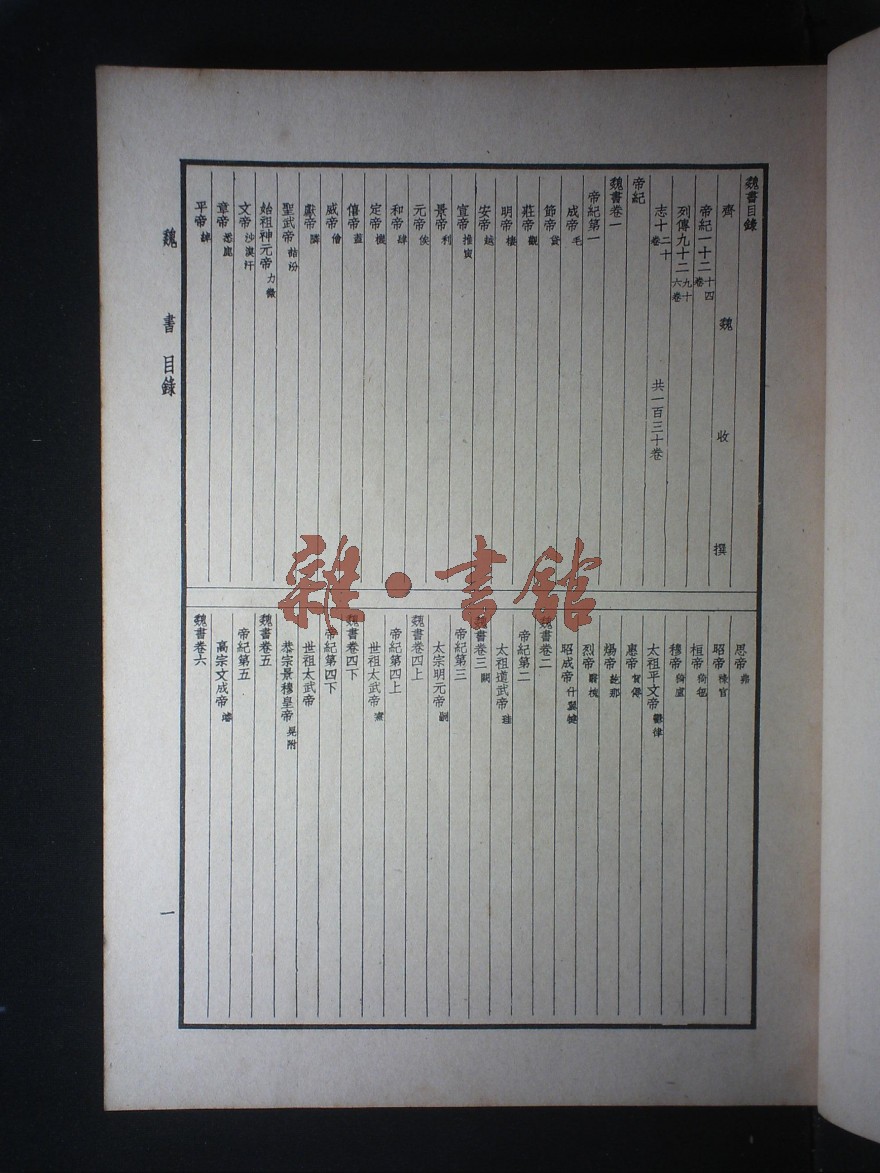 魏書目錄
齊 魏 收 撰
帝紀一十二 十四卷
列傳九十二 九十六卷
志十 二十卷 共一百三十卷
帝紀
魏書卷一
帝紀第一
成帝 毛
節帝 貸
莊帝 觀
明帝 樓
安帝 越
宣帝 推寅
景帝 利
元帝 俟
和帝 肆
定帝 機
僖帝 蓋
威帝 儈
獻帝 隣
聖武帝 詰汾
始祖神元帝 力微
文帝 沙漠汗
章帝 悉鹿
平帝 綽
思帝 弗
昭帝 祿官
桓帝 猗㐌
穆帝 猗盧
太祖平文帝 鬱律
惠帝 賀傉
煬帝 紇那
烈帝 翳槐
昭成帝 什翼犍
魏書卷二
帝紀第二
太祖道武帝 珪
魏書卷三 闕
帝紀第三
太宗明元帝 嗣
魏書卷四上
帝紀第四上
世祖太武帝 燾
魏書卷四下
帝紀第四下
世祖太武帝
恭宗景穆皇帝 晃附
魏書卷五
帝紀第五
高宗文成帝 濬
魏書卷六
魏書 目錄
一
雜·書館